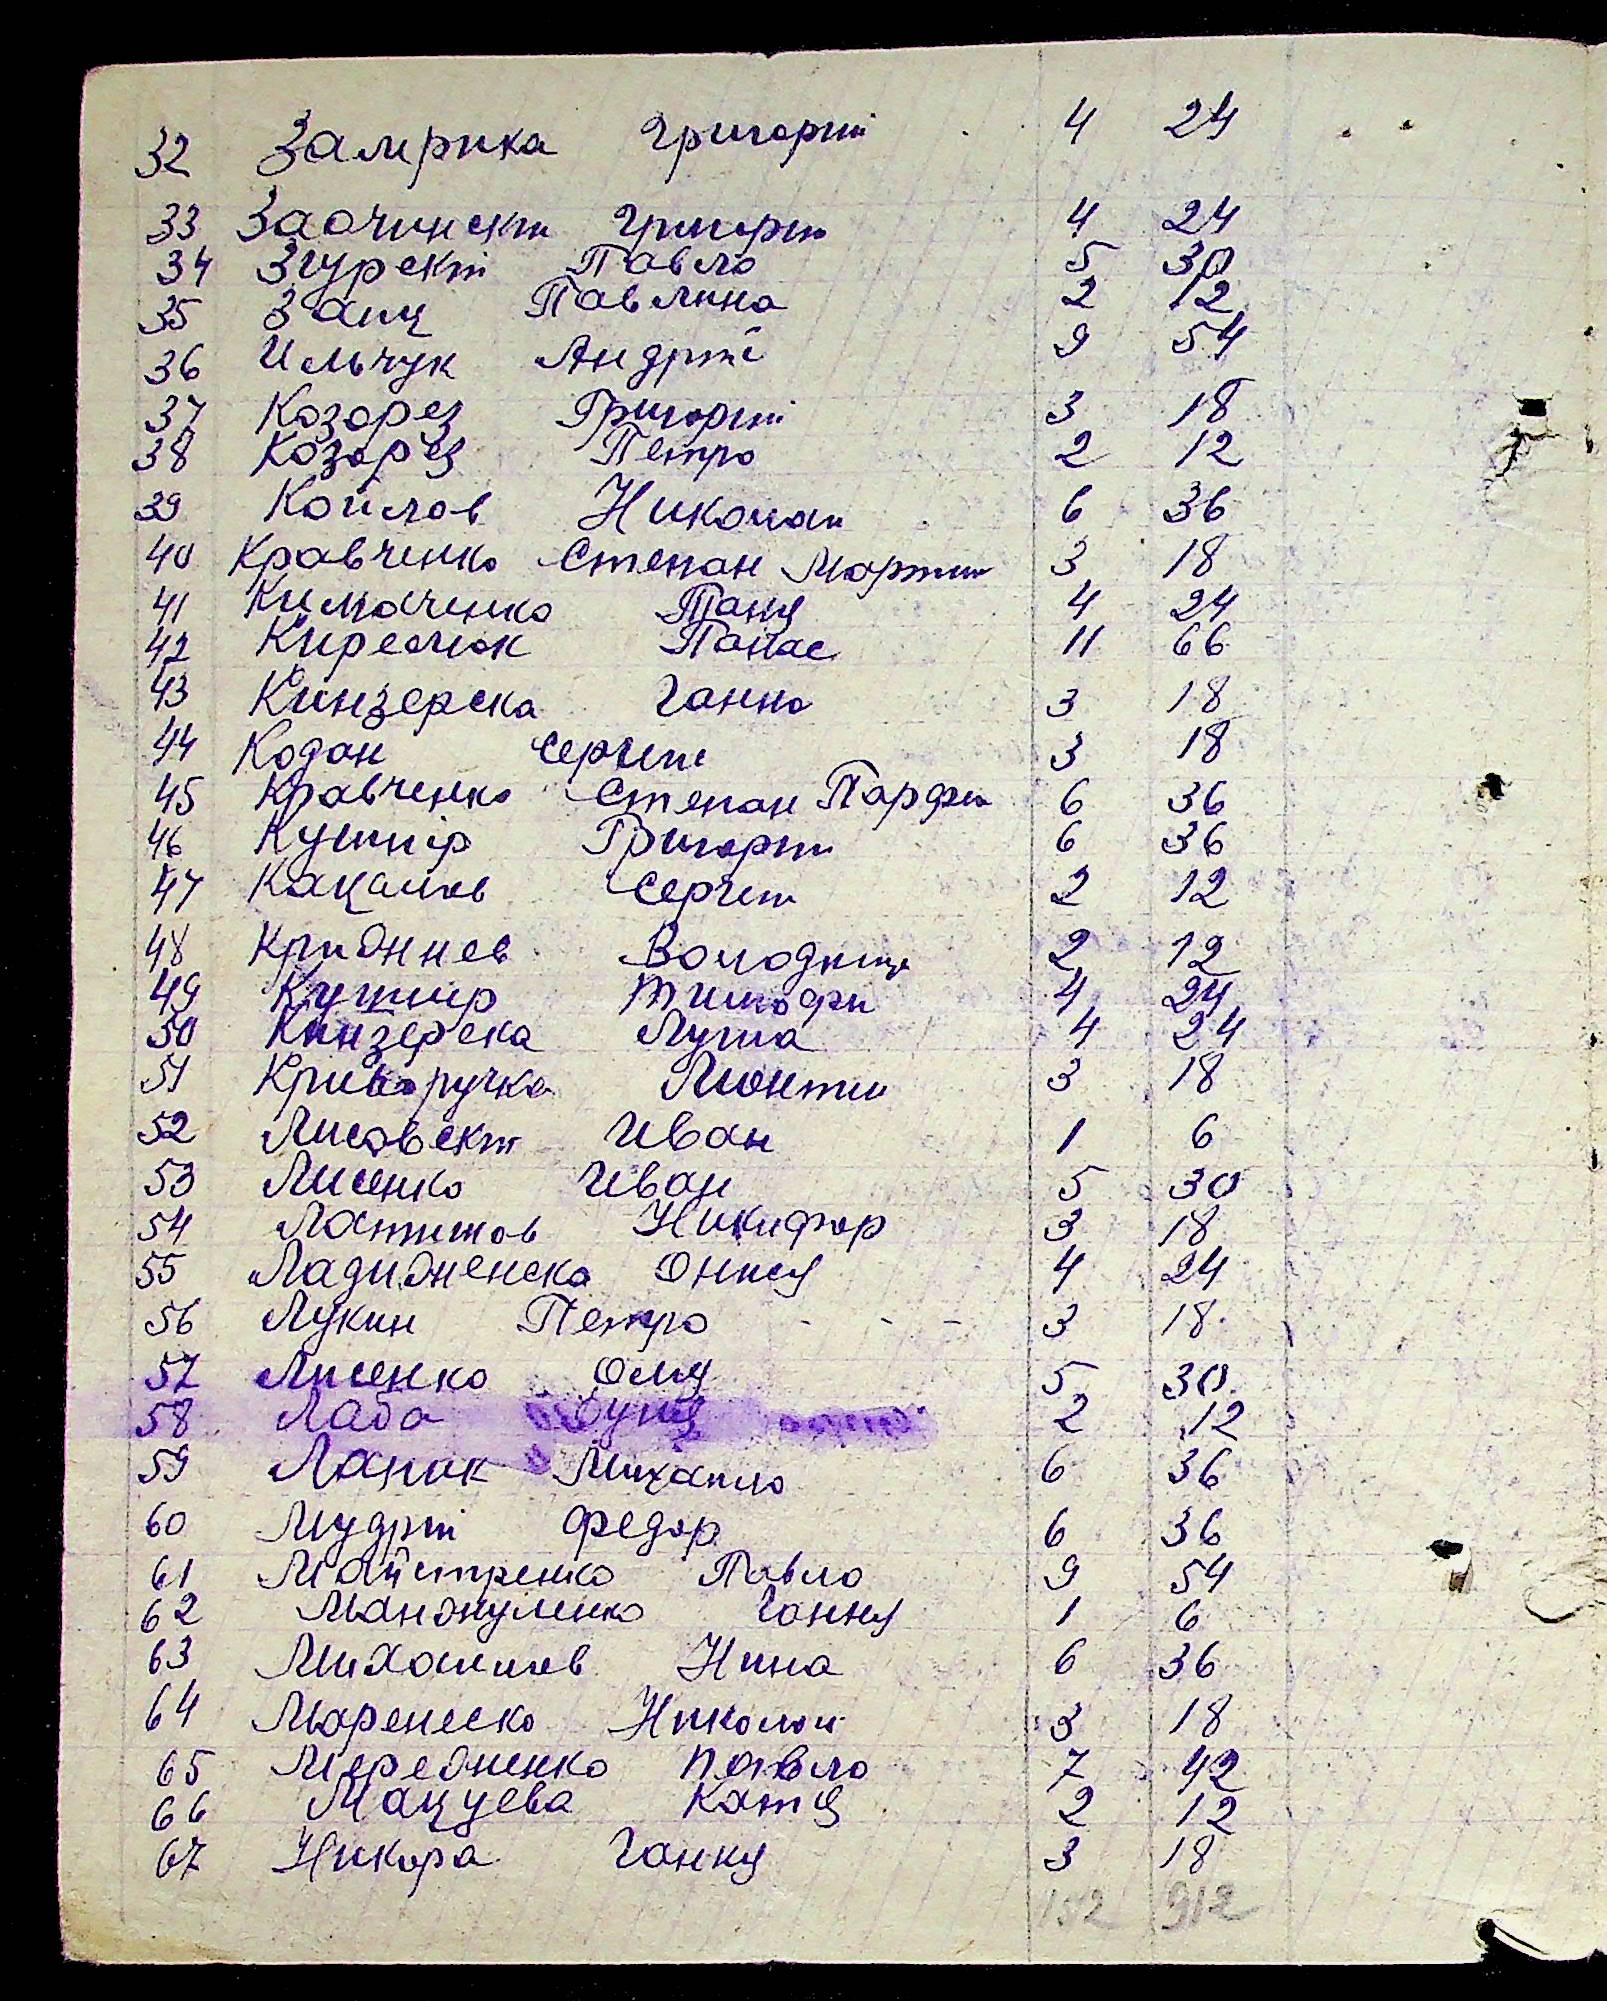 32 Замрика Григорий 4 24
33 Заочинский Григорий 4 24
34 Згурский Павло 5 30
35 Заяц Павлина 2 12
36 Ильчук Андрій 9 54
37 Козорез Григорий 3 18
38 Козорез Петро 2 12
39 Койлов Николаи 6 36
40 Кравченко Степан Мартин 3 18
41 Климаченко Таня 4 24
42 Киреснюк Панас 11 66
43 Кинзерска Ганна 3 18
44 Кодан Сергий 3 18
45 Кравченко Степан Парфен 6 36
46 Кушнір Григорий 6 36
47 Кацалов Сергий 2 12
48 Володимир 2 12
49 Кушнир Тимофи 4 24
50 Кинзерска Луша 4 24
51 Криворучка Леонтий 3 18
52 Лисовский Иван 1 6
53 Лисенко Иван 5 30
54 Латишов Никифор 3 18
55 Ладиженска Онися 4 24
56 Лукин Петро - - - 3 18
57 Лисенко Оля 5 30
58 Лаба 2 12
59 Лапик Михаило 6 36
60 Мудрий Федор 6 36
61 Майстренко Павло 9 54
62 Манжуленко Гання 1 6
63 Михаилов Нина 6 36
64 Маренеско Николай 3 18
65 Мережненко Павло 7 42
66 Мацуева Катя 2 12
67 Никора Гання 3 18
152 912